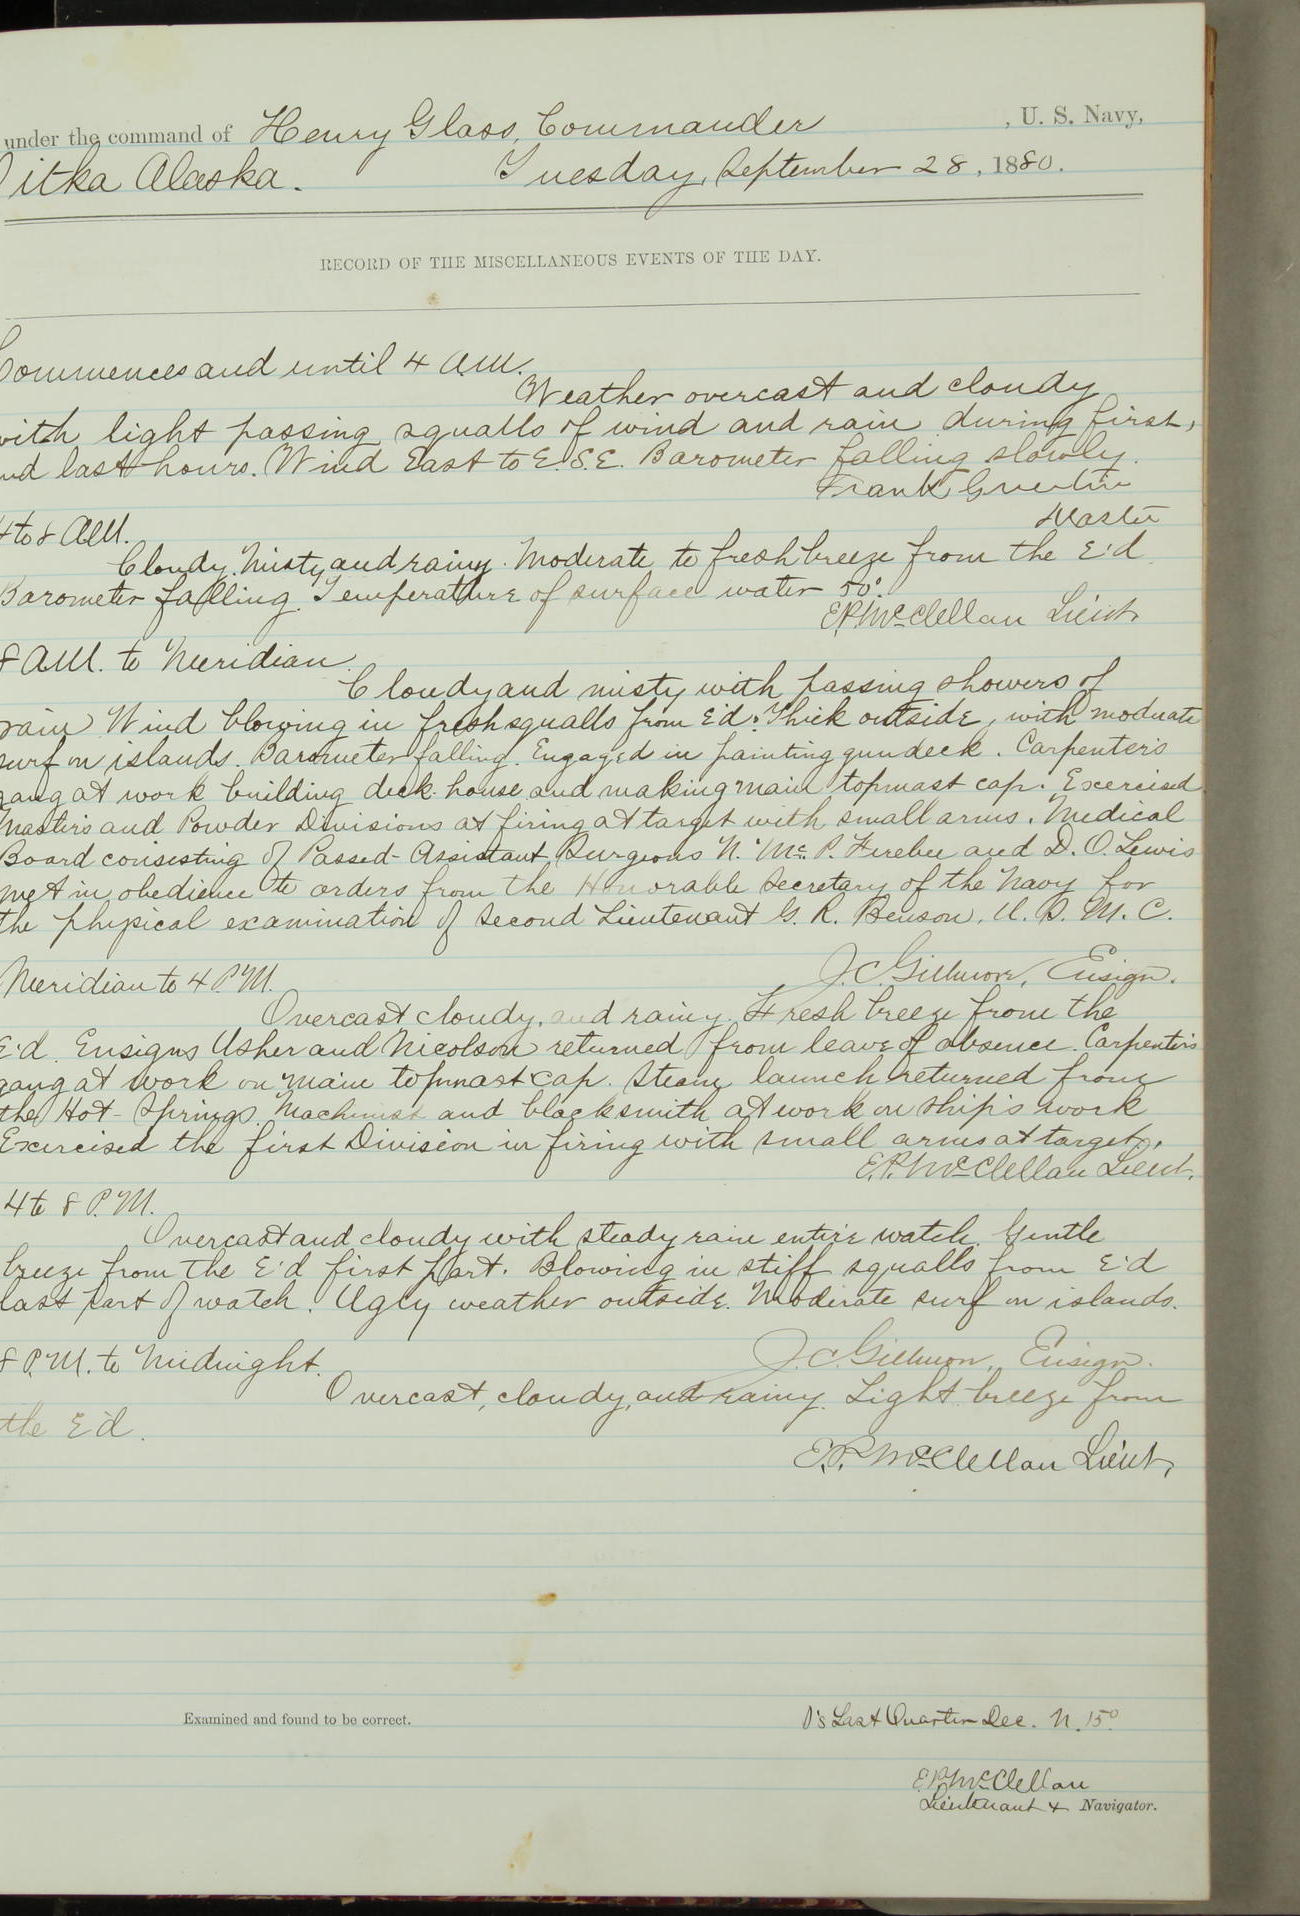 under the command of Henry Glass, Commander , U. S. Navy,
Sitka Alaska. Tuesday, September 28, 1880.
RECORD OF THE MISCELLANEOUS EVENTS OF THE DAY.
Commences and until 4 A.M.
Weather overcast and cloudy
with light passing squalls of wind and rain during first,
and last hours. Wind East to E.S.E. Barometer falling slowly.
Frank
Master
4 to 8 A.M.
Cloudy. Misty and rainy. Moderate to fresh breeze from the E'd
Barometer falling. Temperature of surface water 50°.
E.P. McClellan Lieut
8 A.M. to Meridian.
Cloudy and misty with passing showers of
rain Wind blowing in fresh squalls from E'd. Thick outside, with moderate
surf on islands. Barometer falling. Engaged in painting gundeck. Carpenter's
gang at work building deck house and making main topmast cap. Exercised
Master's and Powder Divisions at firing at target with small arms. Medical
Board consisting of Passed-Assistant Surgeons N. McP. Ferebee and D. O. Lewis
met in obedience to orders from the Honorable Secretary of the Navy for
the physical examination of Second Lieutenant G. R. Benson, U. S. M. C.
J. C. Gillmore, Ensign.
Meridian to 4 P.M.
Overcast cloudy, and rainy. Fresh breeze from the
E'd. Ensigns Usher and Nicolson returned from leave of absence. Carpenter's
gang at work on main topmast cap. Steam launch returned from
the Hot-Springs. Machinist and blacksmith at work on ship's work
Exercised the first Division in firing with small arms at target.
E.P. McClellan Lieut.
4 to 8 P.M.
Overcast and cloudy with steady rain entire watch. Gentle
breeze from the E'd first part. Blowing in stiff squalls from E'd
last part of watch. Ugly weather outside. Moderate surf on islands.
J. C. Gillmore, Ensign.
8 P.M. to Midnight.
Overcast, cloudy, and rainy. Light breeze from
the E'd.
E.P. McClellan Lieut,
Examined and found to be correct.
Last Quarter Dec. N. 15°
E.P. McClellan
Lieutenant & Navigator.